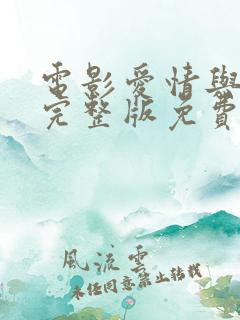 電影愛情與
完整版免費
風流雲
未經同意禁止轉載